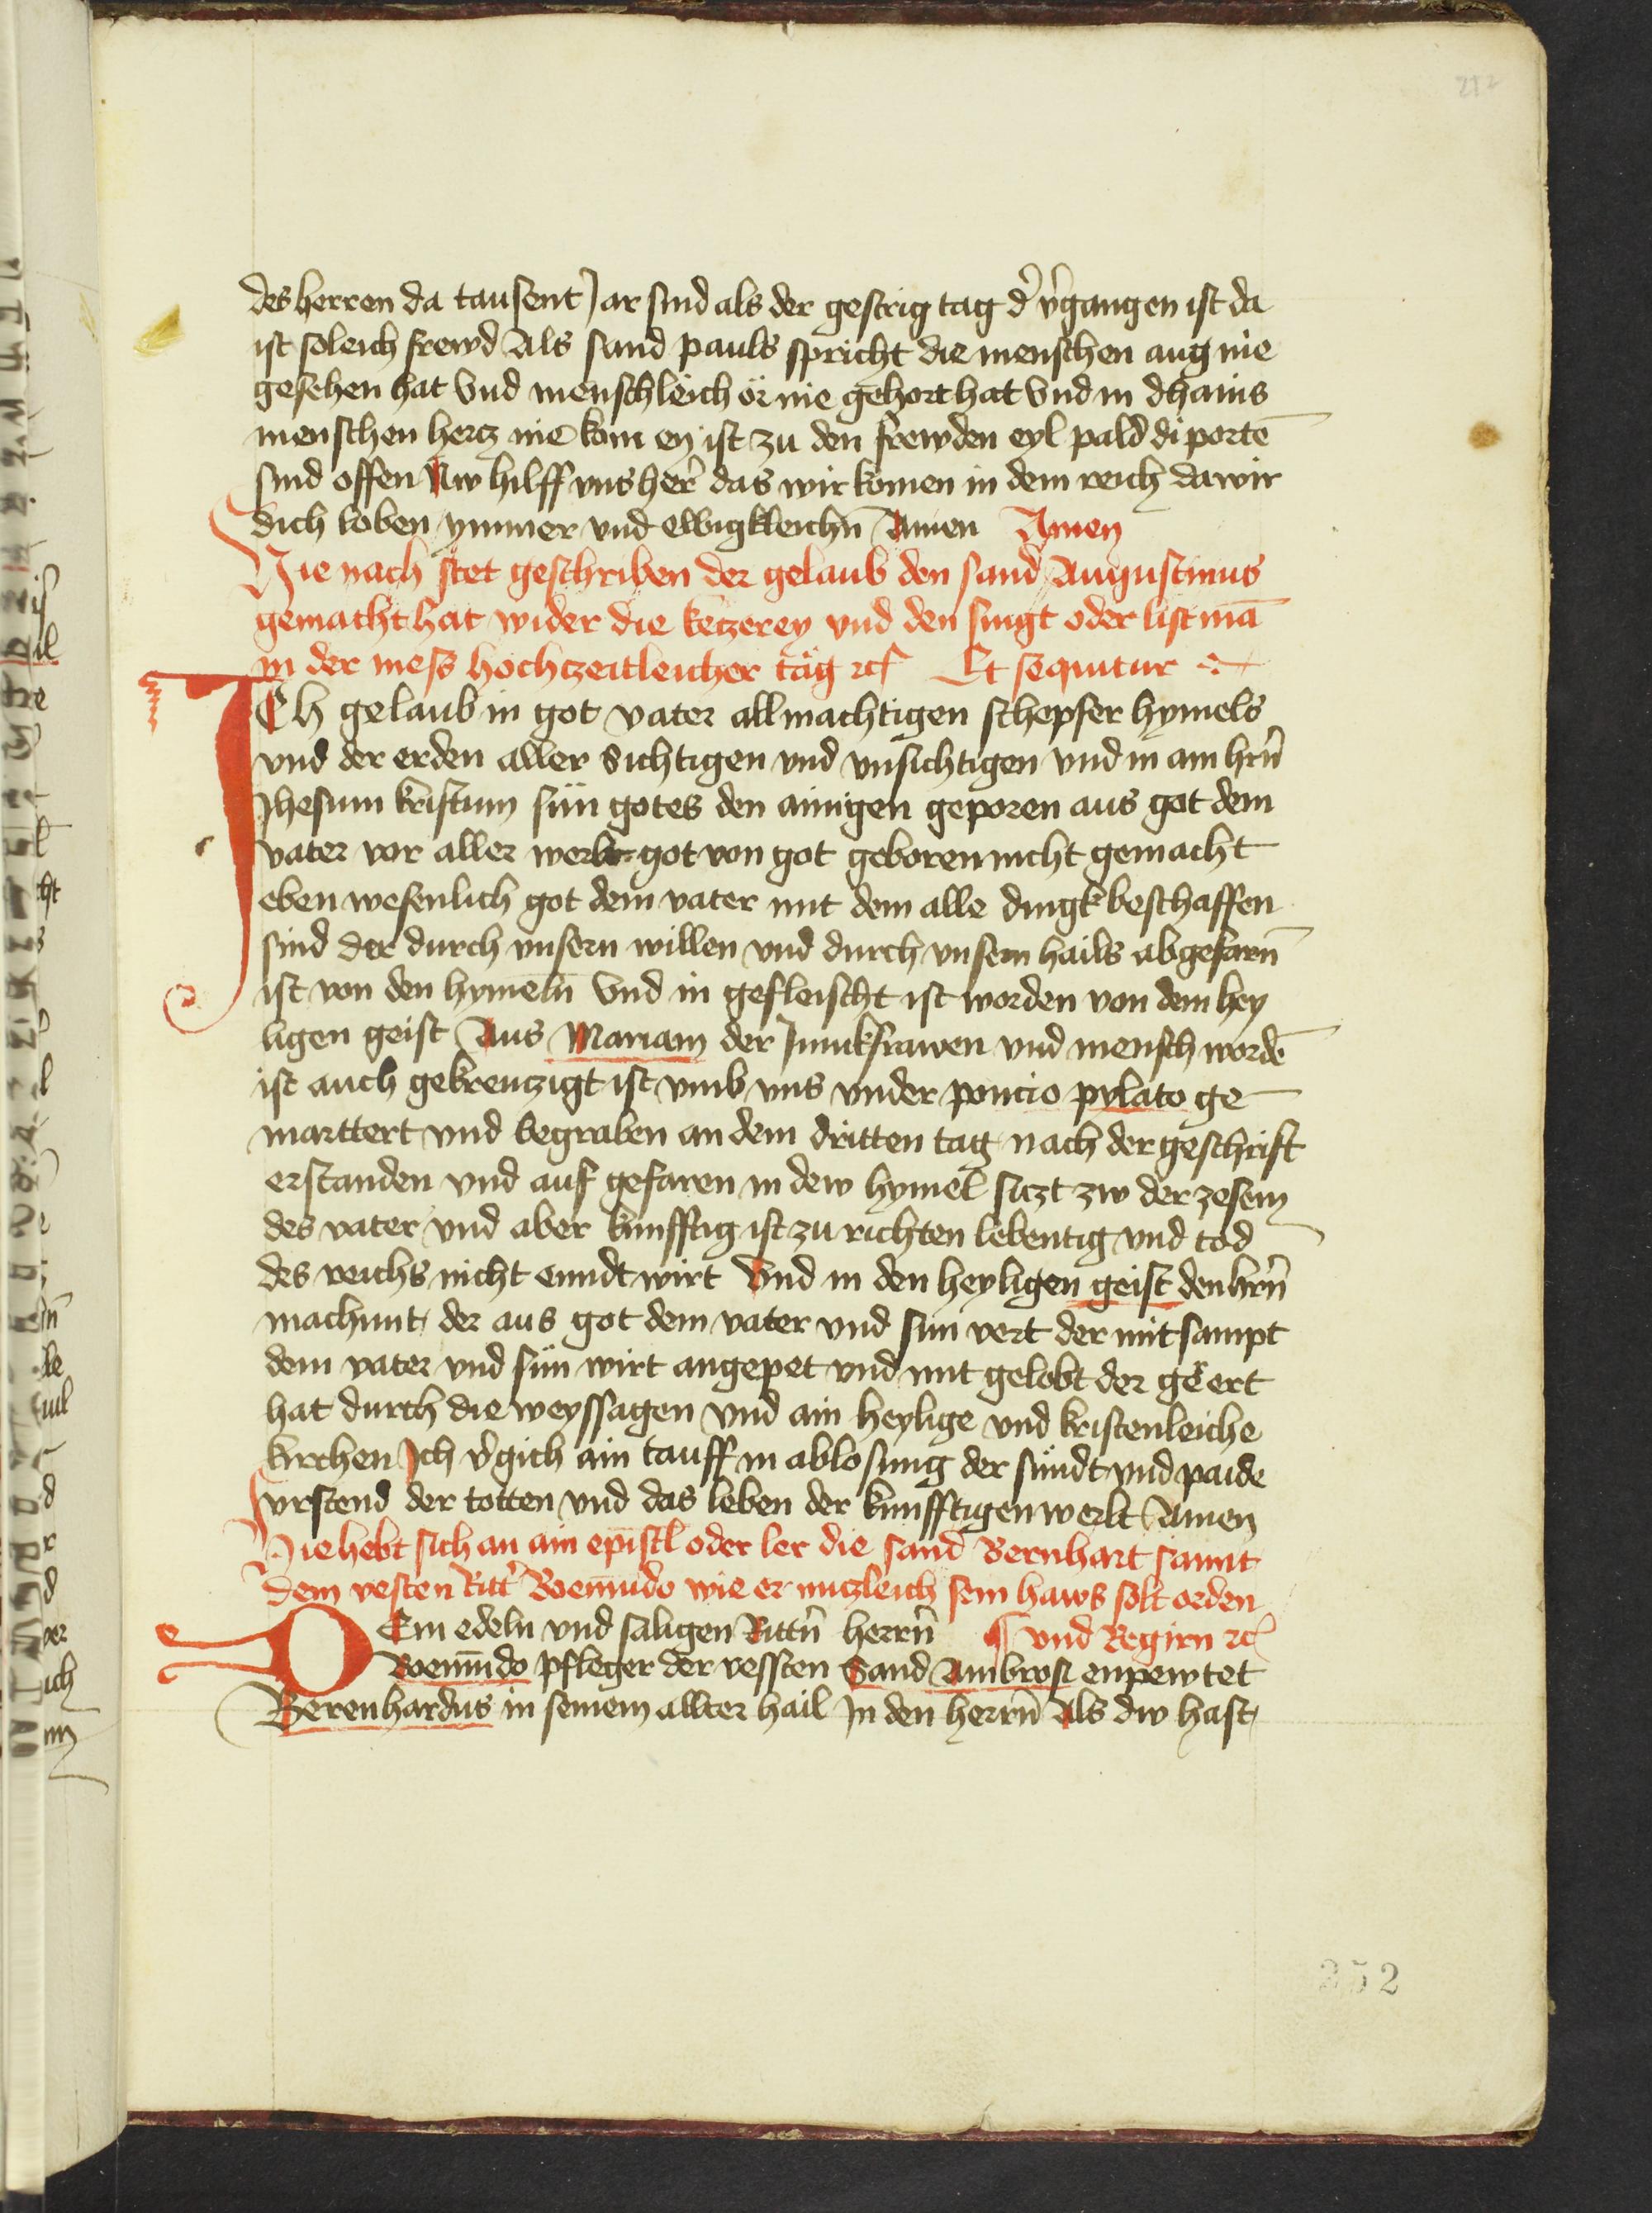 212
des herren da tausent Jar sind als der gestrig tag d' v'gangen ist da
ist soleich frewd Als sand pauls spricht die menschen aug nie
gesehen hat Vnd menschleich ör nie gehort hat Vnd in dhains
menschen hercz nie kom ey ist zu den frewden eyl pald di portē
sind offen Nw hilff vns her' das wir komen in dem reich da wir
dich loben ymmer vnd ewigkleichn̄ Amen Amen
Hie nach stet geschriben der gelaub den sand Augustinus
gemacht hat wider die keczerey vnd den singt oder list mā
in der mess hochczeitleicher täg ⁊c Et sequitur
ICh gelaub in got vater allmachtigen schepfer hymels
vnd der erden aller sichtigen vnd vnsichtigen vnd in ain hrn̄
Jhesum kristum sün gotes den ainigen geporen aus got dem
vater vor aller werlt got von got geboren nicht gemacht
eben wesenlich got dem vater mit dem alle dingk beschaffen
sind der durch vnsern willen vnd durch vnsern hails abgefarn̄
ist von den hymeln̄ Vnd in gefleischt ist worden von dem hey
ligen geist Aus Mariam der Junckfrawen vnd mensch wordē
ist auch gekreuczigt ist vmb vns vnder poncio pylato ge
marttert vnd begraben an dem dritten tag nach der geschrift
erstanden vnd auf gefaren in dew hymel siczt zw der zesem
des vater vnd aber kunfftig ist zu richten lebentig vnd tod
des reichs nicht enndt wirt Vnd in den heyligen geist den hrn̄
machunt der aus got dem vater vnd sun vert der mit sampt
dem vater vnd sün wirt angepet vnd mit gelobt der geert
hat durch die weyssagen vnd ain heylige vnd kristenleiche
kirchen Ich v'gich ain tauff in ablosung der sündt vnd paide
vrstend der totten vnd das leben der kunfftigen werlt Amen
Hie hebt sich an ain epistl oder ler die sand Bernhart sannt
dem vesten Ritt' Boemūdo wie er nuczleich sein haws solt orden
DEm edeln vnd saligen Rittn̄ herrn̄ ¶ vnd Regirn ⁊c
Boemūdo pfleger der vessten Sand Ambrosi enpewtet
Berenhardus in seinem allter hail In den herrn̄ Als dw hast
352